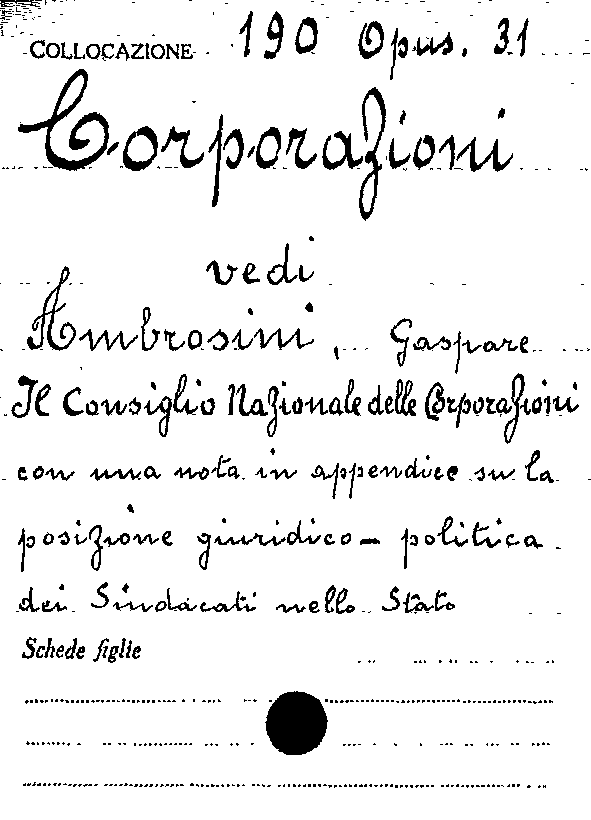 COLLOCAZIONE 190 Opus. 31
Corporazioni
vedi
Ambrosini, Gaspare
Il Consiglio Nazionale delle Corporazioni
con una nota in appendice su la
posizione giuridico - politica
dei Sindacati nello Stato
Schede figlie